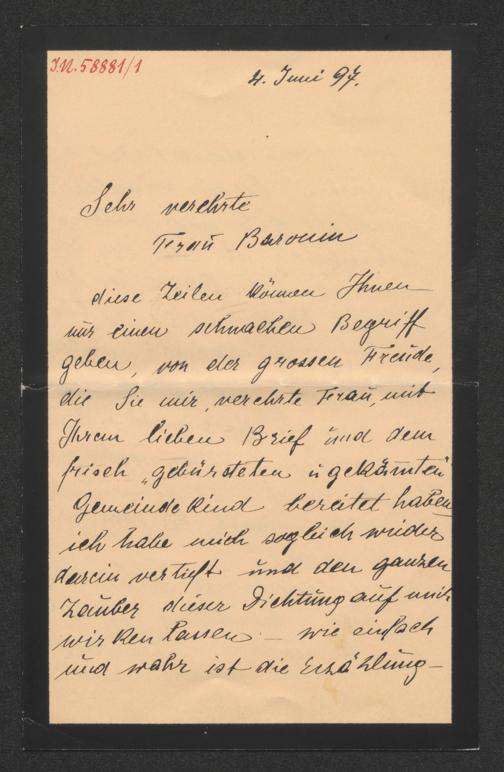 I.N. 58881/1
4. Juni 97.
Sehr verehrte
Frau Baronin
diese Zeilen können Ihnen
nur einen schwachen Begriff
geben, von der grossen Freude,
die Sie mir, verehrte Frau, mit
Ihrem lieben Brief und dem
frisch „gebürsteten u gekämten"
Gemeindekind bereitet haben
ich habe mich sogleich wieder
darein vertieft und den ganzen
Zauber dieser Dichtung auf mich
wirken lassen – wie einfach
und wahr ist die Erzählung –